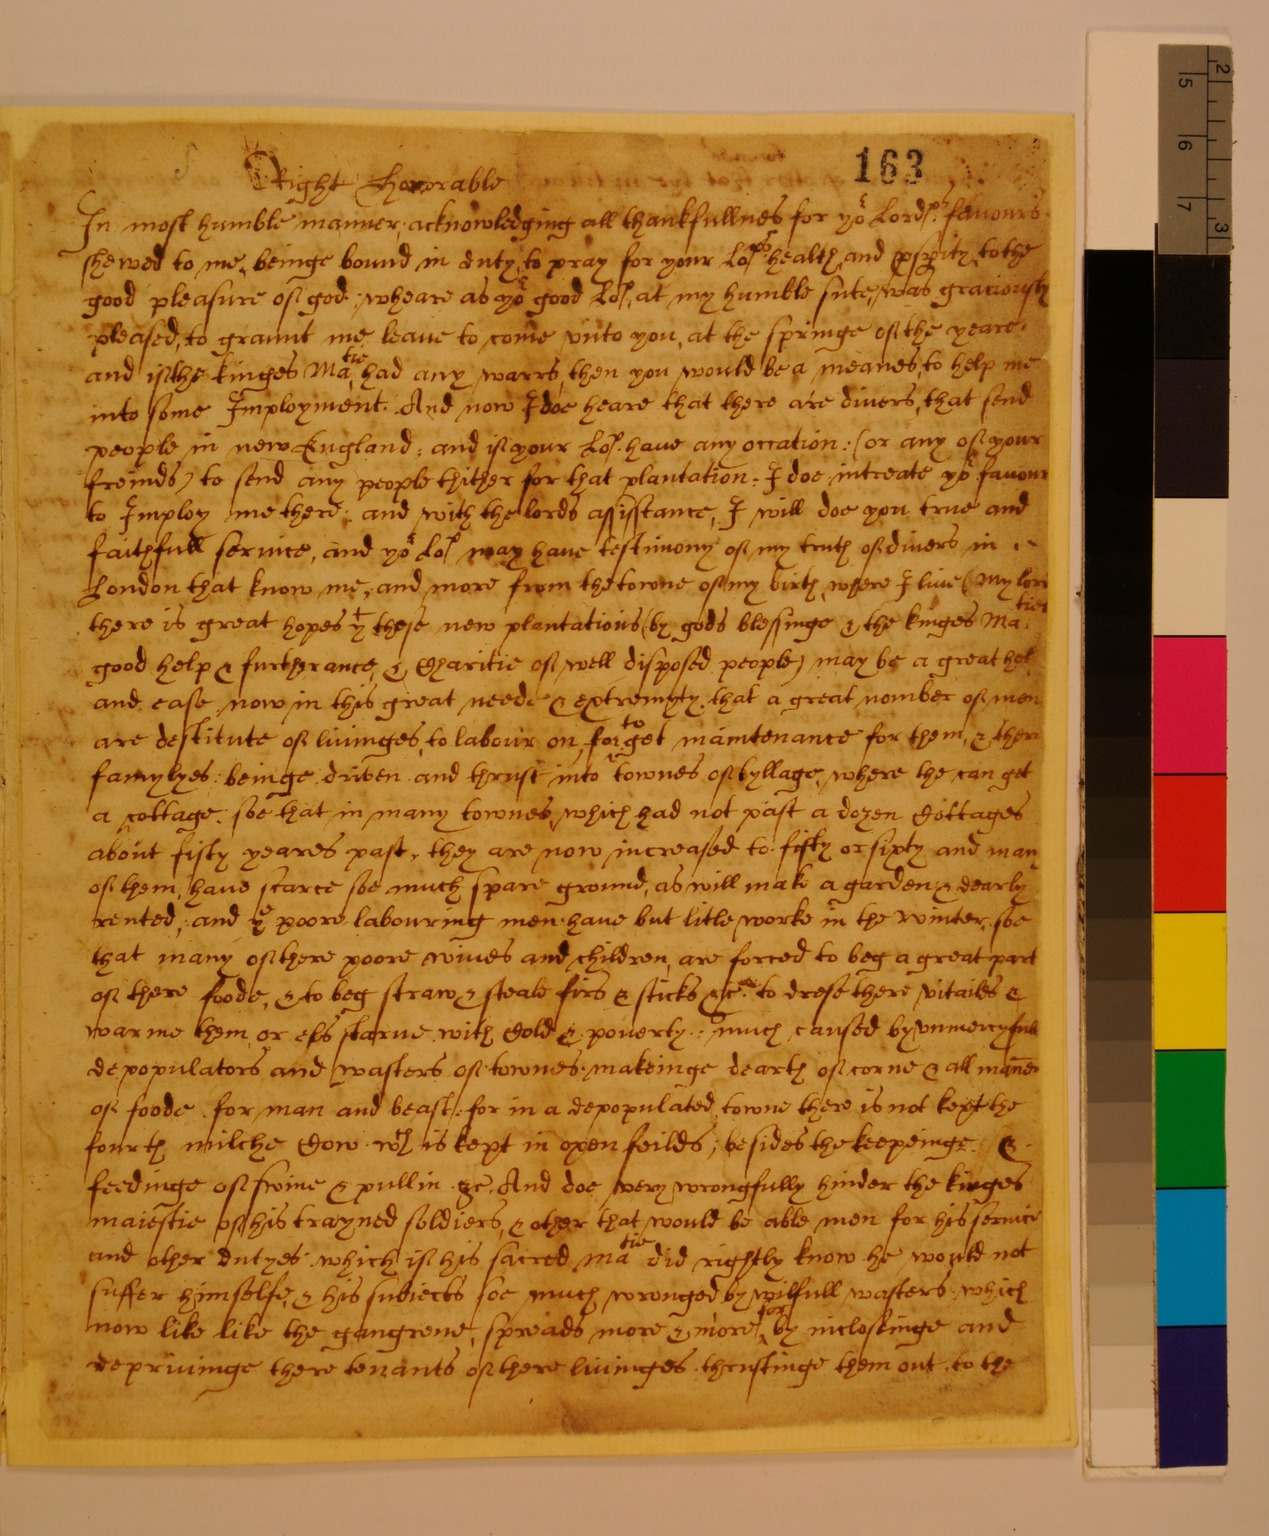 163
Right Honorable
In most humble manner, acknowledging all thankfullnes for yor Lordps: favours
shewed to me, beinge bound in duty, to pray for your Lopps: health, and pspity, to the
good pleasure of god: wheare as yor good Lop, at my humble sute, was graciously
pleased, to graunt me leave to come unto you, at the springe of the yeare:
and if the kinges Matie, had any warrs, then you would be a meanes, to help me
into some Imployment. And now I doe heare that there are divers, that send
people in new England: and if your Lop: have any occation: (or any of your
freinds) to send any people thither for that plantation: I doe intreate yor favour
to Imploy me there: and with the lords assistance, I will doe you true and
faithfull service, and yor Lop may have testimony of my truth of divers in
London that know me, and more from the towne of my birth, where I live (My lord
there is great hopes yt these new plantations (by gods blessinge & the kinges Maties
good help & furtherance, & Charitie of well disposed people) may be a great help
and ease now in this great neede & extremyty, that a great nomber of men
are destitute of livinges, to labour on, for to get maintenance for them, & there
famylyes: beinge driven and thrust into townes of tyllage, where the can get
a cottage: soe that in many townes, which had not past a dozen Cottages
about fifty yeares past, they are now increased to fifty or sixty and many
of them, have scarce soe much spare ground, as will make a garden, & dearly
rented: and ye poore labouring men have but litle worke in the winter, soe
that many of there poore wives and children, are forced to beg a great part
of there foode, & to beg straw & steale firs & sticks &c: to drese there vitailes &
warme them, or els starve with Cold & poverty: much caused by unmercyfull
depopulators and wasters of townes, makeinge dearth of corne & all maner
of foode for man and beast: for in a depopulated towne there is not kept the
fourth milche Cow wch is kept in open feilds; besides the keepeinge &
feedinge of swine & pullin &c. And doe very wrongfully hinder the kinges
maiestie of his trayned soldiers, & other that would be able men for his service
and other dutyes: which if his sacred Matie did rightly know he would not
suffer himselfe, & his subiects soe much wronged by wilfull wasters: which
now like like the gangrene, spreads more & more, for by inclosinge and
deprivinge there tenants of there livinges thrustinge them out to the
2
5
6
7
3